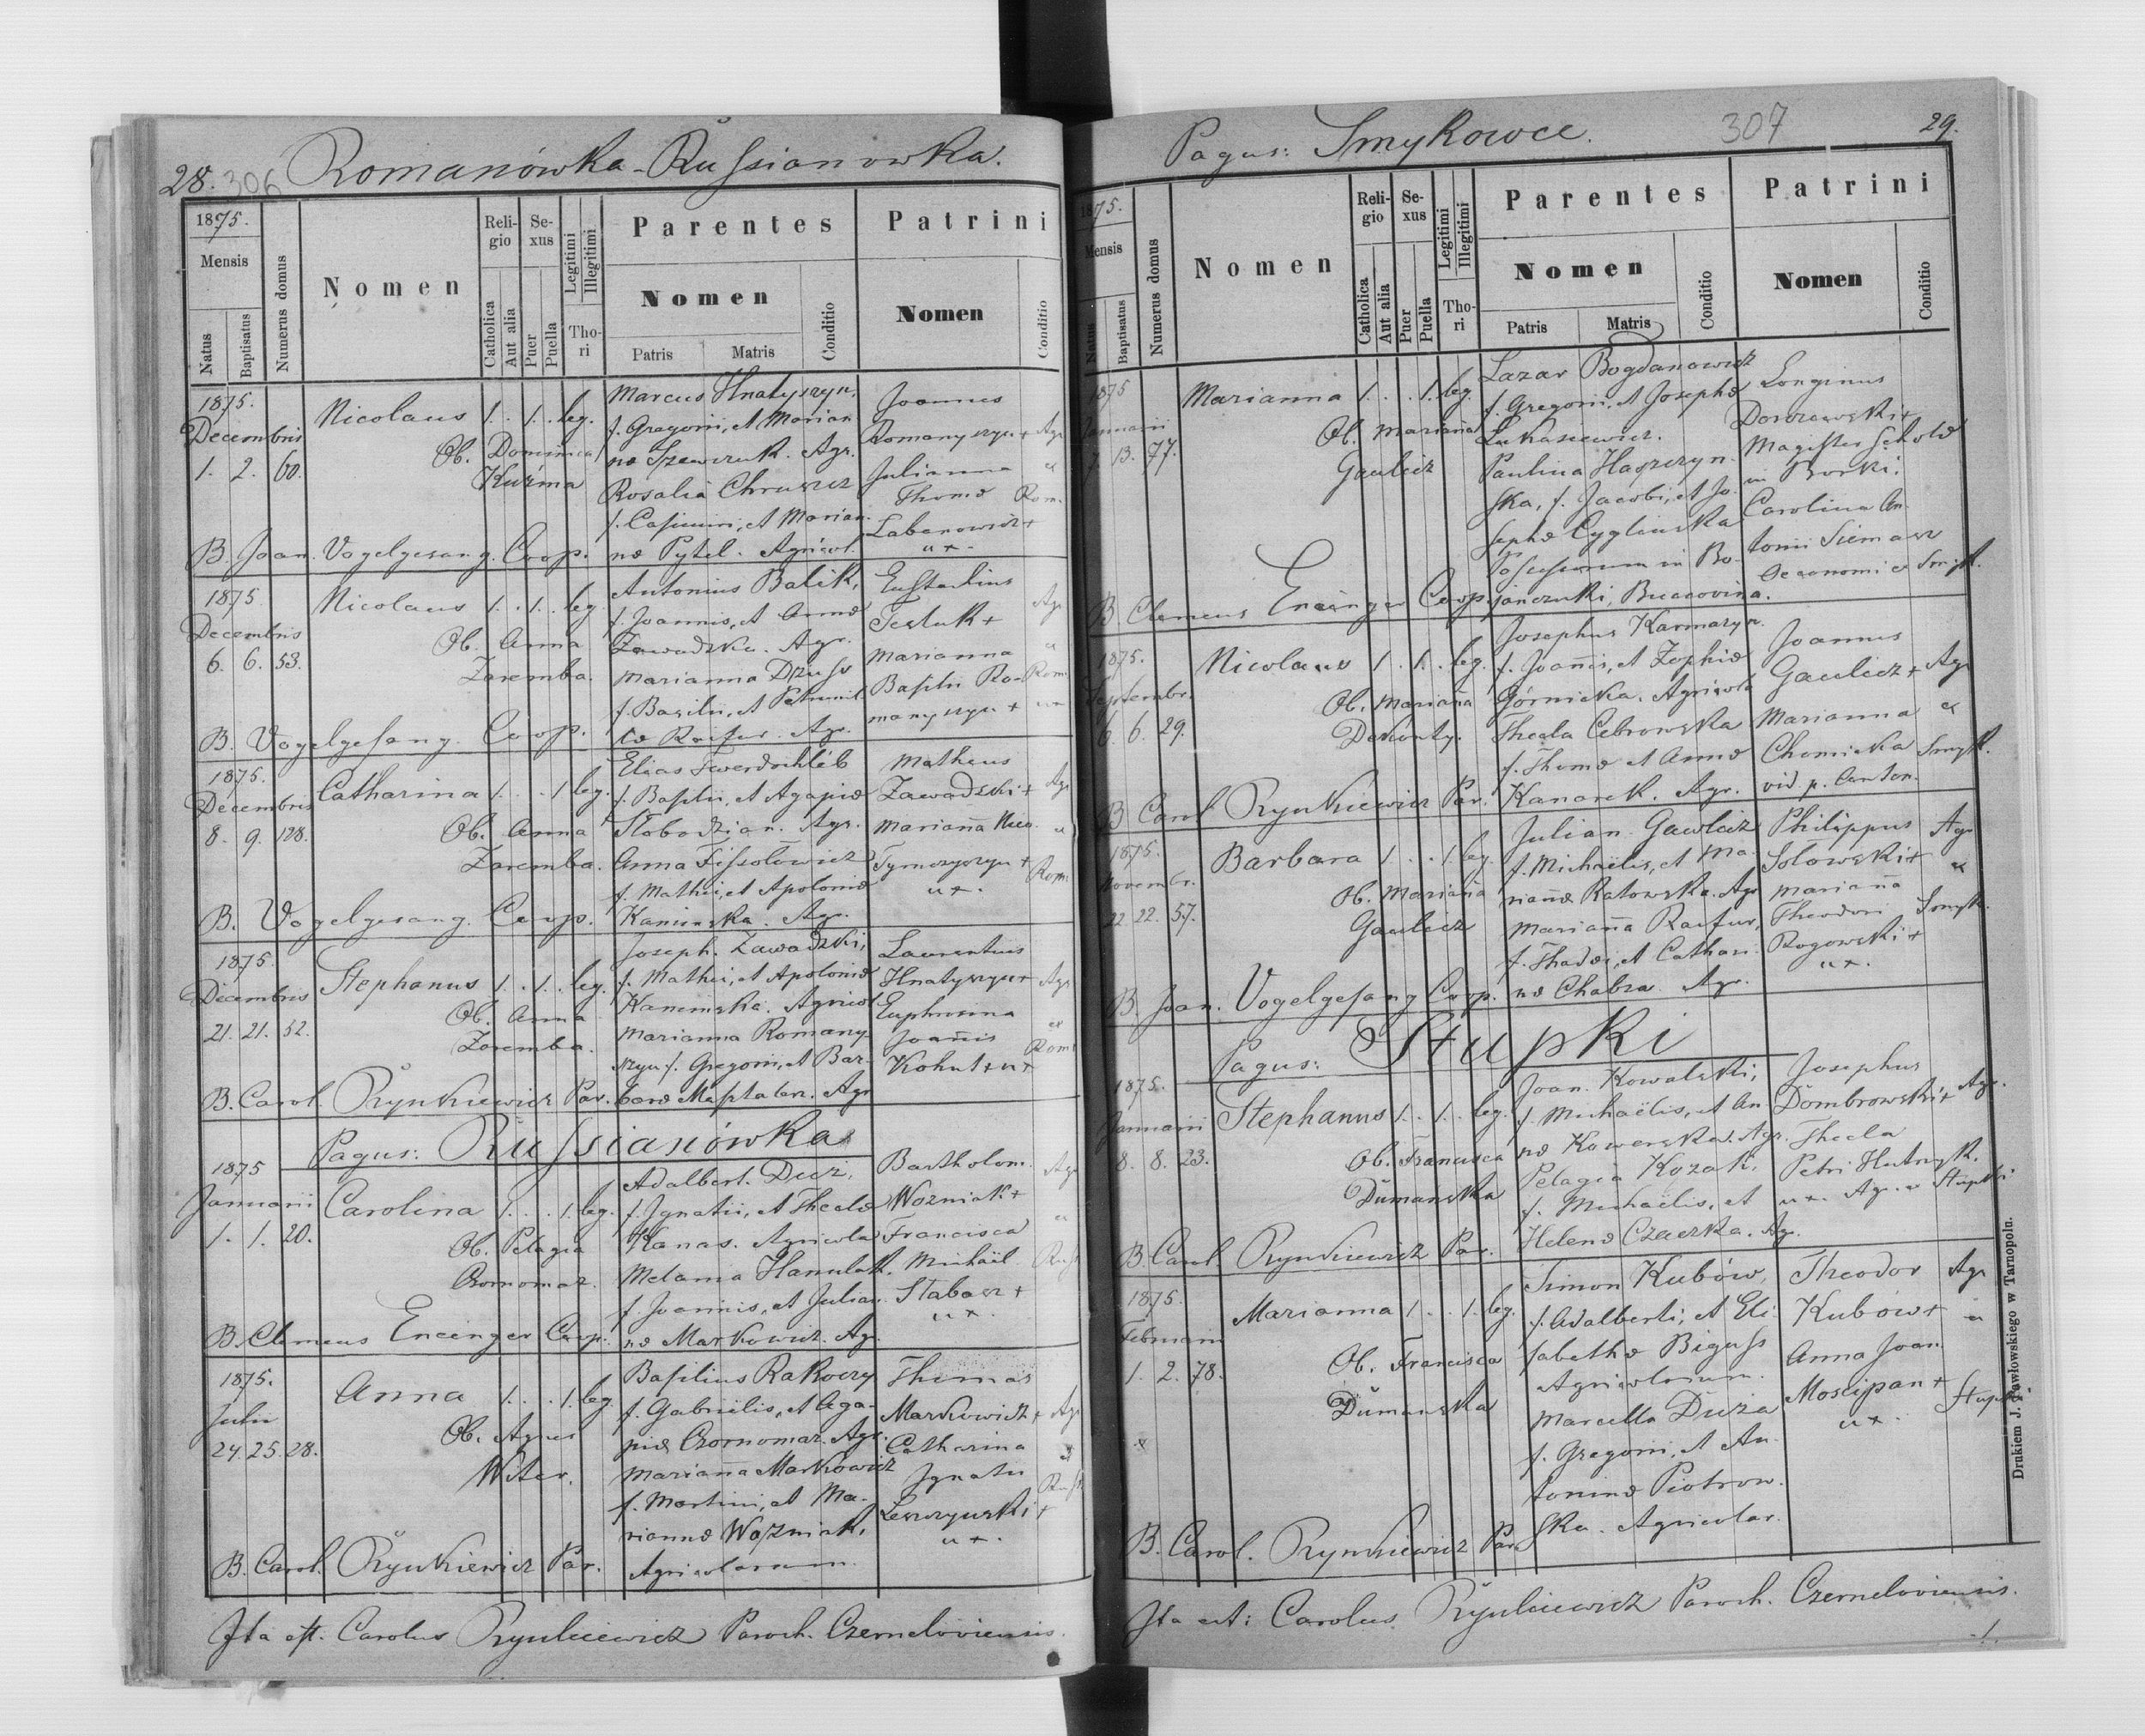 28. 306 Romanówka-Russianowka.
1875.
Mensis
Natus
Baptisatus
Numerus domus
Nomen
Religio
Catholica
Aut alia
Sexus
Puer
Puella
Legitimi
Illegitimi
Thori
Parentes
Nomen
Patris
Matris
Conditio
Patrini
Nomen
Conditio
1875.
Decembris
1. 2. 60.
Nicolaus 1. . 1. . leg.
Ob. Dominica
Kuźma
Marcus Hnatyszyn,
f. Gregorii, et Marian
næ Szewczuk. Agr.
Rosalia Chruszcz
f. Casimiri, et Marian.
næ Pytel. Agricol.
Joannes
Romanyszyn + Agr
Julianna
Thomæ Rom.
Labanowicz +
ux.
B. Joan. Vogelgesang. Coop.
1875
Decembris
6. 6. 53.
Nicolaus 1. . 1. . leg.
Ob. Anna
Zaremba.
Antonius Balik,
f. Joannis, et Annæ
Zawadzka. Agr.
Marianna Dzus
f. Basilii, et Petronel
læ Raifur. Agr.
Eustachius
Tesluk + Agr
Marianna
Basilii Ro- Rom.
manyszyn + ux
B. Vogelgesang. Coop.
1875.
Decembris
8. 9. 128.
Catharina 1. . . 1 leg.
Ob. Anna
Zaremba.
Elias Twerdochlib
f. Basilii, et Agapiæ
Slobodzian. Agr.
Anna
f. Mathei, et Apoloniæ
Kaminska. Agr.
Matheus
Zawadzki + Agr
Marianna Nico.
Tymczyszyn + Rom
ux.
B. Vogelgesang. Coop.
1875.
Decembris
21. 21. 52.
Stephanus 1. . 1. . leg.
Ob. Anna
Zaremba.
Joseph. Zawadzki,
f. Mathei, et Apoloniæ
Kaminska. Agricol.
Marianna Romany
szyn f. Gregorii, et Bar-
baræ Agr
Laurentius
Hnatyszyn + Agr
Euphrosina
Joannis Rom
Kohut + ux
B. Carol. Rynkiewicz Par.
Pagus: Russianówka
1875
Januarii
1. 1. 20.
Carolina 1. . . 1. leg.
Ob. Pelagia
Czornomaz.
Adalbert. Duż,
f. Ignatii, et Theclæ
Kanas. Agricola
Melania Hanulak.
f. Joannis, et Julian
næ Markowicz. Agr.
Bartholom.
Wozniak + Agr
Francisca
Michaël.
Stabasz +
ux.
B. Clemens Encinger Coop.
1875.
Julii
24. 25. 28.
Anna 1. . . 1. leg.
Ob. Agnes
Witer.
Basilius Rakoczy
f. Gabrielis, et Aga-
piæ Czornomaz. Agr.
Marianna Markowicz
f. Martini, et Ma-
riannæ Wozniak,
Agricolarum.
Thomas
Markowicz + Agr
Catharina
Ignatii
Leszczynski +
ux.
B. Carol. Rynkiewicz Par.
Ita est. Carolus Rynkiewicz Paroch. Czerneloviensis.
Pagus: Smykowce. 307 29.
1875.
Mensis
Natus
Baptisatus
Numerus domus
Nomen
Religio
Catholica
Aut alia
Sexus
Puer
Puella
Legitimi
Illegitimi
Thori
Parentes
Nomen
Patris
Matris
Conditio
Patrini
Nomen
Conditio
1875
Januarii
7. 13. 77.
Marianna 1. . . 1. leg.
Ob. Marianna
Gaulicz
Lazar Bogdanowicz
f. Gregorii, et Josephæ
Lukasiewicz.
Paulina
ska, f. Jacobi, et Jo-
sephæ Cyglinska
Possessorum in Bo-
janczuki, Bucovina.
Longinus
Magister Scholæ
in Borki.
Carolina An
tonii Siemasz
Oeconomi ex Smyk.
B. Clemens Encinger Coop.
1875.
Septembr.
6. 6. 29.
Nicolaus 1. . 1. . leg.
Ob. Marianna
Dekonty.
Josephus Karmazyn.
f. Joannis, et Zophiæ
Górnicka. Agricola
Thecla Cebrowska
f. Thomæ et Annæ
Kanarek. Agr.
Joannes
Gaulicz + Agr
Marianna ex
Chomicka Smyk.
vid. p. Anton.
B Carol Rynkiewicz Par.
1875.
Novembr.
22. 22. 57.
Barbara 1. . . 1. leg.
Ob. Marianna
Gaulicz
Julian. Gawlicz
f. Michaëlis, et Ma-
riannæ Ratowska. Agr
Marianna Raifur,
f. Thadei, et Cathari-
næ Chabza. Agr.
Philippus Agr
Solowski + ex
Marianna
Theodori Smyk.
Rogowski +
ux.
B. Joan. Vogelgesang Coop.
Pagus: Stupki
1875.
Januarii
8. 8. 23.
Stephanus 1. . 1. . leg.
Ob. Francisca
Dumanska
Joan. Kowalski,
f. Michaëlis, et An
næ Kowerska. Agr.
Pelagia Kozak,
f. Michaëlis, et
Helenæ Czaczka. Agr.
Josephus
Dombrowski + Agr.
Thecla
Petri Hutnyk.
ux. Agr. ex Stupki
B. Carol. Rynkiewicz Par.
1875.
Februarii
1. 2. 78.
Marianna 1. . . 1. leg.
Ob. Francisca
Dumanska
Simon Kubów,
f. Adalberti, et Eli
sabethæ Biguss
Agricolarum.
Marcella Duża
f. Gregorii, et An
toninæ Piotrow-
ska. Agricolar.
Theodor Agr
Kubów + ex
Anna Joan.
Moscipan + Stupki
ux.
B. Carol. Rynkiewicz Par.
Ita est: Carolus Rynkiewicz Paroch. Czerneloviensis.
Drukiem J. Pawłowskiego w Tarnopolu.